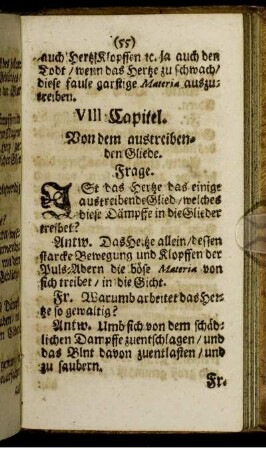 (55)
auch HertzKlopffen ꝛc. ja auch den
Todt / wenn das Hertze zu schwach /
diese faule garstige Materia auszu-
treiben.
VIII Capitel.
Von dem austreiben-
den Gliede.
Frage.
ISt das Hertze das einige
austreibende Glied / welches
diese Dämpffe in die Glieder
treibet?
Antw. Das Hertze allein / dessen
starcke Bewegung und Klopffen der
Puls-Adern die böse Materia von
sich treibet / in die Gicht.
Fr. Warumb arbeitet das Her-
tze so gewaltig?
Antw. Umb sich von dem schäd-
lichen Dampffe zuentschlagen / und
das Blut davon zuentlasten / und
zu saubern.
Fr.